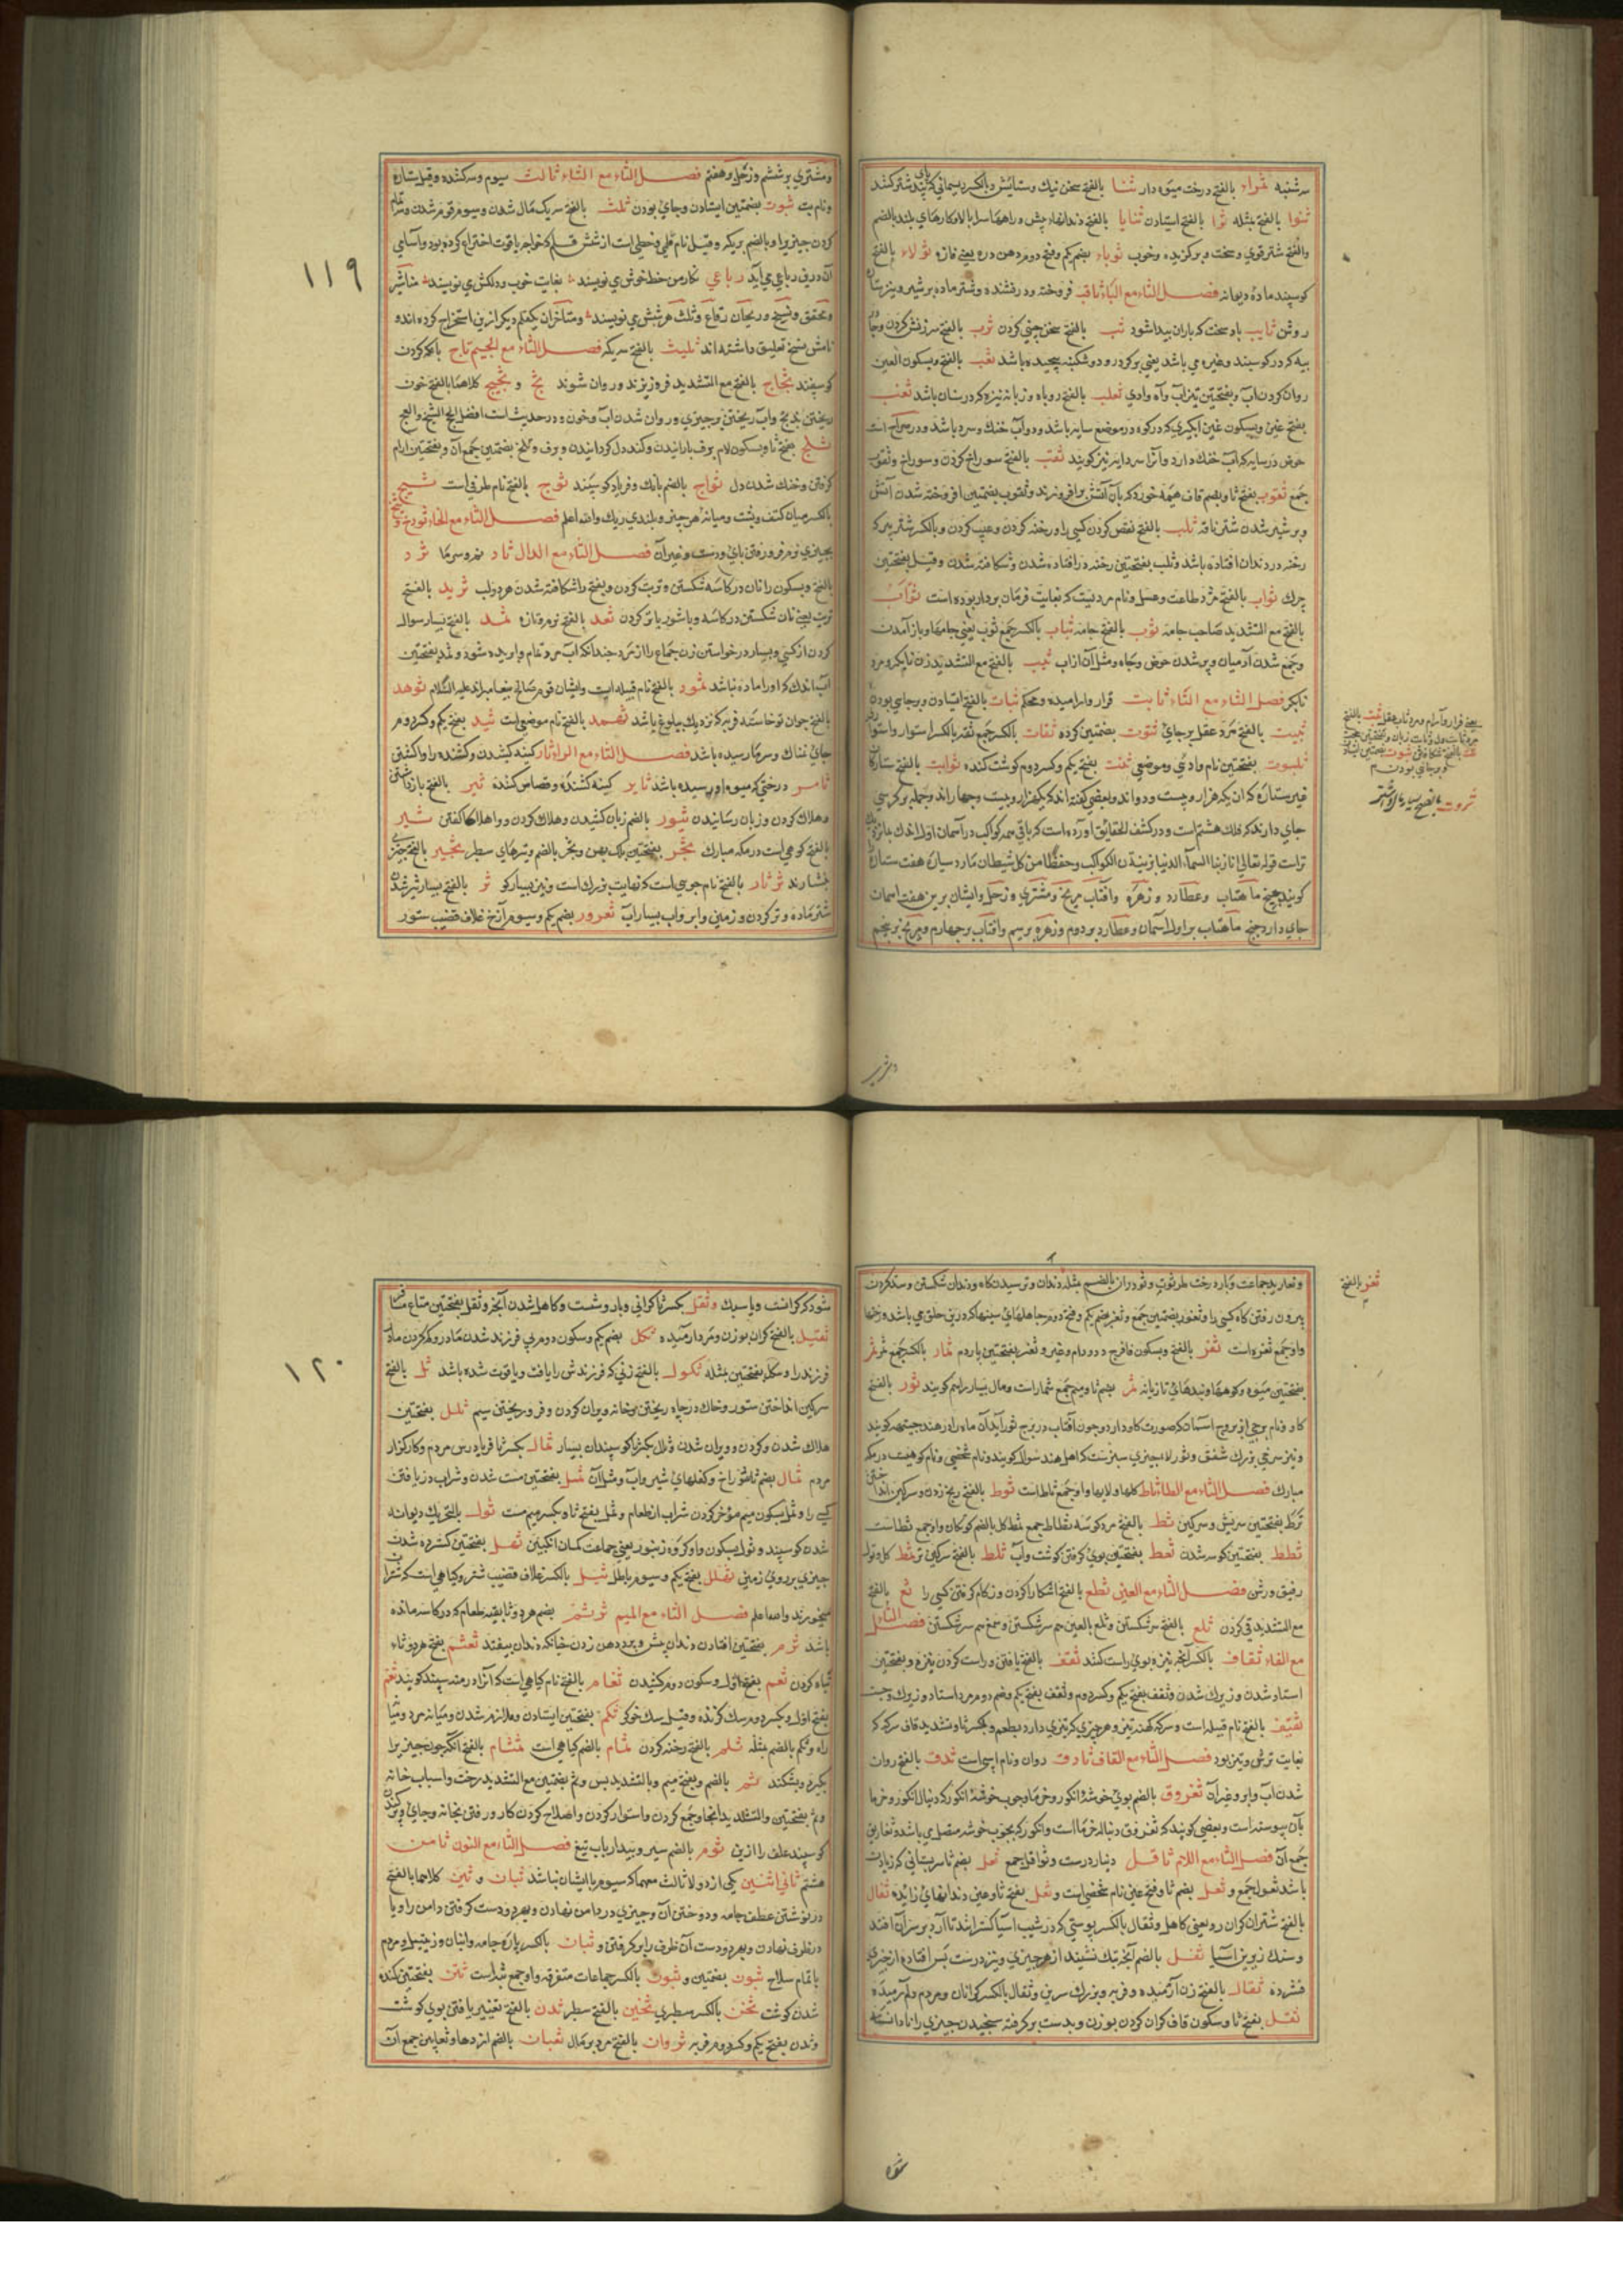 سه شنبه ثمراء بالفتح درخت میوه دار ثنا بالفتح سخن نیک و ستایش و بالکسر ریسمانی که
ثنوا بالفتح مثله ثرا بالفتح ایستادن ثنایا بالفتح دندانهاء پیش و راهها سر بالا و کارهای بلند بالضم
والفتح شتر قوی و سخت و برکزیده و خوب ثوباء بضم یکم و فتح دوم دهن دره یعنی فازه ثولاء بالفتح
کوسپند ماده دیوانه فصل الثاء مع الباء ثاقب فروخته و درفشنده و شتر ماده پر شیر و نیز ستاره
روشن ثایب باد سخت که باران پیدا شود ثب بالفتح سخن چینی کردن ثرب بالفتح سرزنش کردن و
پیه که در کوسپند و غیره می باشد یعنی بر کرد روده و شکنبه پیچیده باشد ثعب بالفتح و بسکون العین
روان کردن آب و بفتحتین نیز آب وآه وادی ثعلب بالفتح روباه و زبانه نیزه که در سنان باشد ثغب
بفتح غین و بسکون غین آبکیری که در کوه و در موضع سایه باشد و دو آب خنک و سرد باشد و در صراح است
حوض در سایه که آب خنک دارد و آنرا سردابه نیز کویند ثقب بالفتح سوراخ کردن و سوراخ و ثقوب
جمع ثقوب بفتح ثا و بضم قاف هیمه خورد که بآن آتش برافروزند و ثقوب بضمتین افروخته شدن آتش
و پر شیر شدن شتر ناقه ثلب بالفتح نقص کردن کسی را و رخنه کردن و عیب کردن و بالکسر شتر پیر که
رخنه در دندان افتاده باشد و ثلب بفتحتین رخنه در افتاده شدن و شکافته شدن و قیل بفتحتین
چرک ثواب بالفتح مزد طاعت و عسل و نام مردیست که بغایت فرمان بردار بوده است ثوّاب
بالفتح مع التشدید صاحب جامه ثوب بالفتح جامه ثیاب بالکسر جمع ثوب یعنی جامها و باز آمدن
و جمع شدن آدمیان و پر شدن حوض و چاه و مثل آن از آب ثیب بالفتح مع التشدید زن نا بکر و مرد
نابکر فصل الثاء مع التاء ثابت قرار و آرامیده و محکم ثبات بالفتح ایستادن و بر جای بودن
ثبیت بالفتح مرد عقل بر جای ثبوت بضمتین کرده ثقات بالکسر جمع ثقه بالکسر استوار و استوا
ثلبوت بفتحتین نام وادی و موضعی ثنت بفتح یکم و کسر دوم کوشت کنده ثوابت بالفتح ستارکان
غیر ستاره که آن یکهزار و بیست و دو اند و بعضی کفته اند که یکهزار و بیست و چهار اند و جمله بر کرسی
جای دارند که فلک هشتم است و در کشف الحقائق آورده است که باقی همه کواکب در آسمان اول اند
تر است قوله تعالی انا زینا السماء الدنیا بزینة ن الکواکب و حفظا من کل شیطان مارد سیاره هفت ستاره
کویند چنانچه ماهتاب و عطارد و زهره و آفتاب مریخ و مشتری و زحل و ایشان برین هفت اسمان
جای دارد چنانچه ماهتاب بر اول آسمان و عطارد بر دوم و زهره بر سیم و آفتاب بر چهارم و مریخ بر پنجم
یعنی قرار و آرام و مرد ثابت عقل ثبت بالفتح
و بر جای بودن
ثروت بالفتح بسیار
و مشتری بر ششم و زحل بر هفتم فصل الثاء مع الثاء ثالث سیوم و سه کشنده و قیل ستاره
و نام بت ثبوت بضمتین ایستادن و جای بودن ثلث بالفتح سه یک مال شدن و سیوم قوم شدن و
کردن چیزیرا و بالضم سه یکه و قیل نام قلمی و خطی است از شش قلم که خواجه یاقوت اختراع کرده بود و اسامی
آن درین رباعی می آید رباعی نکار من خط خوش می نویسد بغایت خوب و دلکش می نویسد مناشیر
و محقق و نسخ و ریحان رقاع و ثلث هر شش می نویسد و متاخران یک قلم دیکر ازین استخراج کرده اند و
نامش نسخ تعلیق داشته اند ثلیث بالفتح سه یکه فصل الثاء مع الجیم ثاج بانک کردن
کوسپند ثجاج بالفتح مع التشدید فرو ریزند و روان شوند ثج و ثجیج کلاهما بالفتح خون
ریختن ذبح و آب ریختن و چیزی و روان شدن آب و خون و در حدیث است افضل الحج الثج والعج
ثلج بفتح ثا و بسکون لام برف بارانیدن و کند دل کردانیدن و برف و ثلج بضمتین جمع آن و بفتحتین آرام
کرفتن و خنک شدن دل ثواج بالضم بانک و فریاد کوسپند ثوج بالفتح نام ظرفی است ثبج
بالکسر میان کتف و پشت و میانه هر چیز و بلندی ریک والله اعلم فصل الثاء مع الخاء ثوخ و
بچیزی نرم فرو رفتن پای و دست و غیر آن فصل الثاء مع الدال ثاد نم و سرما ثرد
بالفتح و بسکون را نان در کاسه شکستن و تربت کردن و بفتح را شکافته شدن هر دو لب ثرید بالفتح
تربت یعنی نان شکستن در کاسه و با شوربا تر کردن ثعد بالفتح نو و تازه ثمد بالفتح بسیار سوال
کردن از کسی و بسیار در خواستن زن جماع را از مرد چندانکه آب مرد تمام و اوریده شود و ثمد بفتحتین
آب اندک که او را ماده نباشد ثمود بالفتح نام قبیله است و ایشان قوم صالح پیغامبر اند علیه السلام ثوهد
بالفتح جوان نو خاسته فربه که نزدیک ببلوغ باشد ثهمد بالفتح نام موضعی است ثید بفتح یکم و کسر دوم
جای نمناک و سرما رسیده باشد فصل الثاء مع الراء ثار کینه کشیدن و کشنده را وا کشتن
ثامر درختی که میوه او رسیده باشد ثایر کینه کشنده و قصاص کننده ثبر بالفتح باز داشتن
و هلاک کردن و زیان رسانیدن ثبور بالضم زیان کشیدن و هلاک کردن و واهلاکا کفتن ثبیر
بالفتح کوهی است در مکه مبارک ثجر بفتحتین پهن و ثجر بالضم و تیرهای سطبر ثجیر بالفتح چیزی
فشارند ثرثار بالفتح نام جوسی است که نهایت بزرک است و نیز بسیار کو ثر بالفتح بسیار شیر شدن
شتر ماده و تر کردن و زمینی و ابر و آب بسیار آب ثعرور بضم یکم و سیوم غلاف قضیب ستور
۱۱۹
ثغر بالفتح
بیرون رفتن کاه کسی را و ثغور بضمتین جمع و ثغر بضم یکم و فتح دوم جاهلهای سینه که درین حلق می باشد و رخنها
واو جمع ثغره است ثفر بالفتح و بسکون فا فرج دد و دام و غیر و ثفر بفتحتین پاردم ثمار بالکسر جمع ثمر
بفتحتین میوه و کوهها و بندهای تازیانه ثمر بضم ثا و میم جمع ثمار است و مال بسیار را هم کویند ثور بالفتح
کاو و نام برجی از بروج آسمان که صورت کاو دارد و چون آفتاب در برج ثور آید آن ماه را در هند جیتهه کویند
و نیز سرخی بزرک شفق و ثور لا چیزی سبز نیست که اهل هند سوال کویند و نام شخصی و نام کوهیست در مکه
مبارک فصل الثاء مع الطاء ثاط کلها و لایها و او جمع ثاطه است ثوط بالفتح ریخ زدن و سرکین
ثرط بفتحتین سریش و سرکین ثط بالفتح مرد کوسه ثطاط جمع ثطط بالضم کوسکان و او جمع ثط است
ثطط بفتحتین کوسه شدن ثعط بفتحتین بوی کرفتن کوشت و آب ثلط بالفتح سرکین تر
رقیق و رشن فصل الثاء مع العین ثطع بالفتح آشکارا کردن و زکام کرفتن کسی را ثع بالفتح
مع التشدید قی کردن ثلع بالفتح سر شکستن و ثلغ بالغین هم سر شکستن و ثمغ هم سر شکستن فصل الثاء
مع الفاء ثقاف بالکسر آنچه نیزه بوی راست کنند ثقف بالفتح یافتن و راست کردن نیزه و بفتحتین
استاد شدن و زیرک شدن و ثقف بفتح یکم و کسر دوم و ثقف بفتح یکم و ضم دوم مرد استاد و زیرک و چست
ثقیف بالفتح نام قبیله است و سرکه کهنه تیز و هر چیزی که تیزی دارد بطعم و بکسر ثا و تشدید قاف سرکه که
بغایت ترش و تیز بود فصل الثاء مع القاف ثادق روان و نام اسپی است ثدق بالفتح روان
شدن آب و ابر و غیر آن ثفروق بالضم بوی خوشه انکور و خرما و چوب خوشه انکور که دنبال انکور و خرما
بآن پیوسته است و بعضی کویند که ثفروق دنباله خرما است و انکور که بچوب خوشه متصل می باشد ثفاریق
جمع آن فصل الثاء مع اللام ثاقل دینار درست و ثواقل جمع ثعل بضم ثا سر پستانی که زیادت
باشد ثعول جمع و ثعل بضم ثا و فتح عین نام شخصی است و ثعل بفتح ثا و عین دندانهای زائده ثفال
بالفتح شتران کران رو یعنی کاهل و ثفال بالکسر پوستی که در شیب اسیا کسترانند تا آرد بر سر آن افتد
و سنک زیرین آسیا ثفل بالضم آنچه بتک نشیند از هر چیزی و نیز درست پس افتاده از چیزی
فشرده ثقال بالفتح زن آرمیده و فربه و بزرک سرین و ثقال بالکسر کرانان و مردم دل آرمیده
ثقل بفتح ثا و سکون قاف کران کردن بوزن و بدست بر کرفته سنجیدن چیزی را تا دانسته
شود که کرانست و یا سبک و ثقل بکسر ثا کرانی و بار و شست و کاهل شدن آنجز و ثقل بفتحتین متاع
ثقیل بالفتح کران بوزن و مرد آرمیده ثکل بضم یکم و سکون دوم بی فرزند شدن مادر و کم کردن مادر
فرزند را و ثکل بفتحتین مثله ثکول بالفتح زنی که فرزندش را یافت و یا فوت شده باشد ثل بالفتح
سرکین انداختن ستور و خاک در چاه ریختن و خانه ویران کردن و فرو ریختن سیم ثلل بفتحتین
هلاک شدن و کردن و ویران شدن و ثلال بکسر ثا کوسپندان بسیار ثمال بکسر ثا فریاد رس مردم و کارکزار
مردم ثمال بضم ثا و کفکهای شیر و آب و مثل آن ثمل بفتحتین مست شدن و شراب دریافتن
کسی را و ثمل بسکون میم مؤخر کردن شراب از طعام و ثمل بفتح ثا و بکسر میم مست ثول بالتحریک دیوانه
شدن کوسپند و ثول بسکون واو کروه زنبور یعنی جماعت مکسان انکبین ثهل بفتحتین کسترده شدن
چیزی بر روی زمین ثهلل بفتح یکم و سیوم باطل ثیل بالکسر غلاف قضیب شتر و کیاهی است که شتر
میخورند والله اعلم فصل الثاء مع المیم ثرتم بضم هر دو ثا بقیه طعام که در کاسه مانده
باشد ثرم بفتحتین افتادن دندان پیش و بر دهن زدن چنانکه دندان بیفتد ثعثم بفتح هر دو ثاء
تباه کردن ثعم بفتح اول و سکون دوم کشیدن ثغام بالفتح نام کیاهی است که آنرا درمنه سپید کویند ثغم
بفتح اول و بکسر دوم سک کزنده و قیل سک خوکر ثکم بفتحتین ایستادن و ملازم شدن و میانه مرد و میانه
راه و ثکم بالضم مثله ثلم بالفتح رخنه کردن ثمام بالضم کیاهی است ثمثام بالفتح آنکه چون چیزیرا
بکیرد و بشکند ثم بالضم و بفتح میم و بالتشدید پس و ثم بفتحتین مع التشدید رخت و اسباب خانه
و ثم بفتحتین والتشدید آنجا و جمع کردن و استوار کردن و اصلاح کردن کار و رفتن بخانه و جای و
کوسپند علف را ازین ثوم بالضم سیر و بیدار باب تیغ فصل الثاء مع النون ثامن
هشتم ثانی اثنین یکی از دو و لا ثالث معهما که سیوم با ایشان نباشد ثبان و ثبن کلاهما بالفتح
در نوشتن عطف جامه و دوختن آن و چیزی در دامن نهادن و بهر دو دست کرفتن دامن را و یا
در ظرفی نهادن و بهر دو دست آن ظرف را بر کرفتن و ثبان بالکسر پاره جامه و انبان و زنبیل و مردم
با تمام سلاح ثبون بضمتین و ثبون بالکسر جماعات متفرقه واو جمع ثبه است ثتن بفتحتین کنده
شدن کوشت ثخن بالکسر سطبری ثخین بالفتح سطبر ثدن بالفتح تغییر یافتن بوی کوشت
و ثدن بفتح یکم و کسر دوم فربه ثروان بالفتح مرد پر مال ثعبان بالضم اژدها و ثعابین جمع آن
۱۲۰